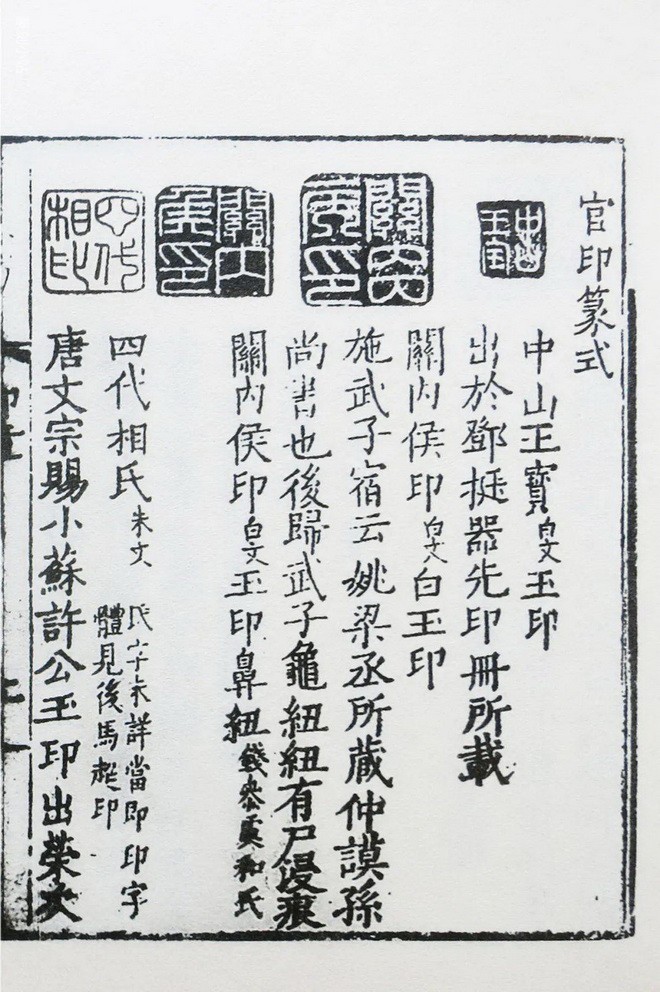 官印篆式
中山王宝
中山王寶白文玉印
出於鄧挺器先印冊所載
關内侯印
關内侯印白文白玉印
施武子宿云姚梁丞所藏仲謨孫
尚書也後歸武子龜紐紐有尸浸痕
關内侯印
關内侯印白文玉印鼻紐錢和氏
四代相印
四代相氏朱文
氏字未詳當即印字
體見後馬起印
唐文宗賜小蘇許公玉印出榮